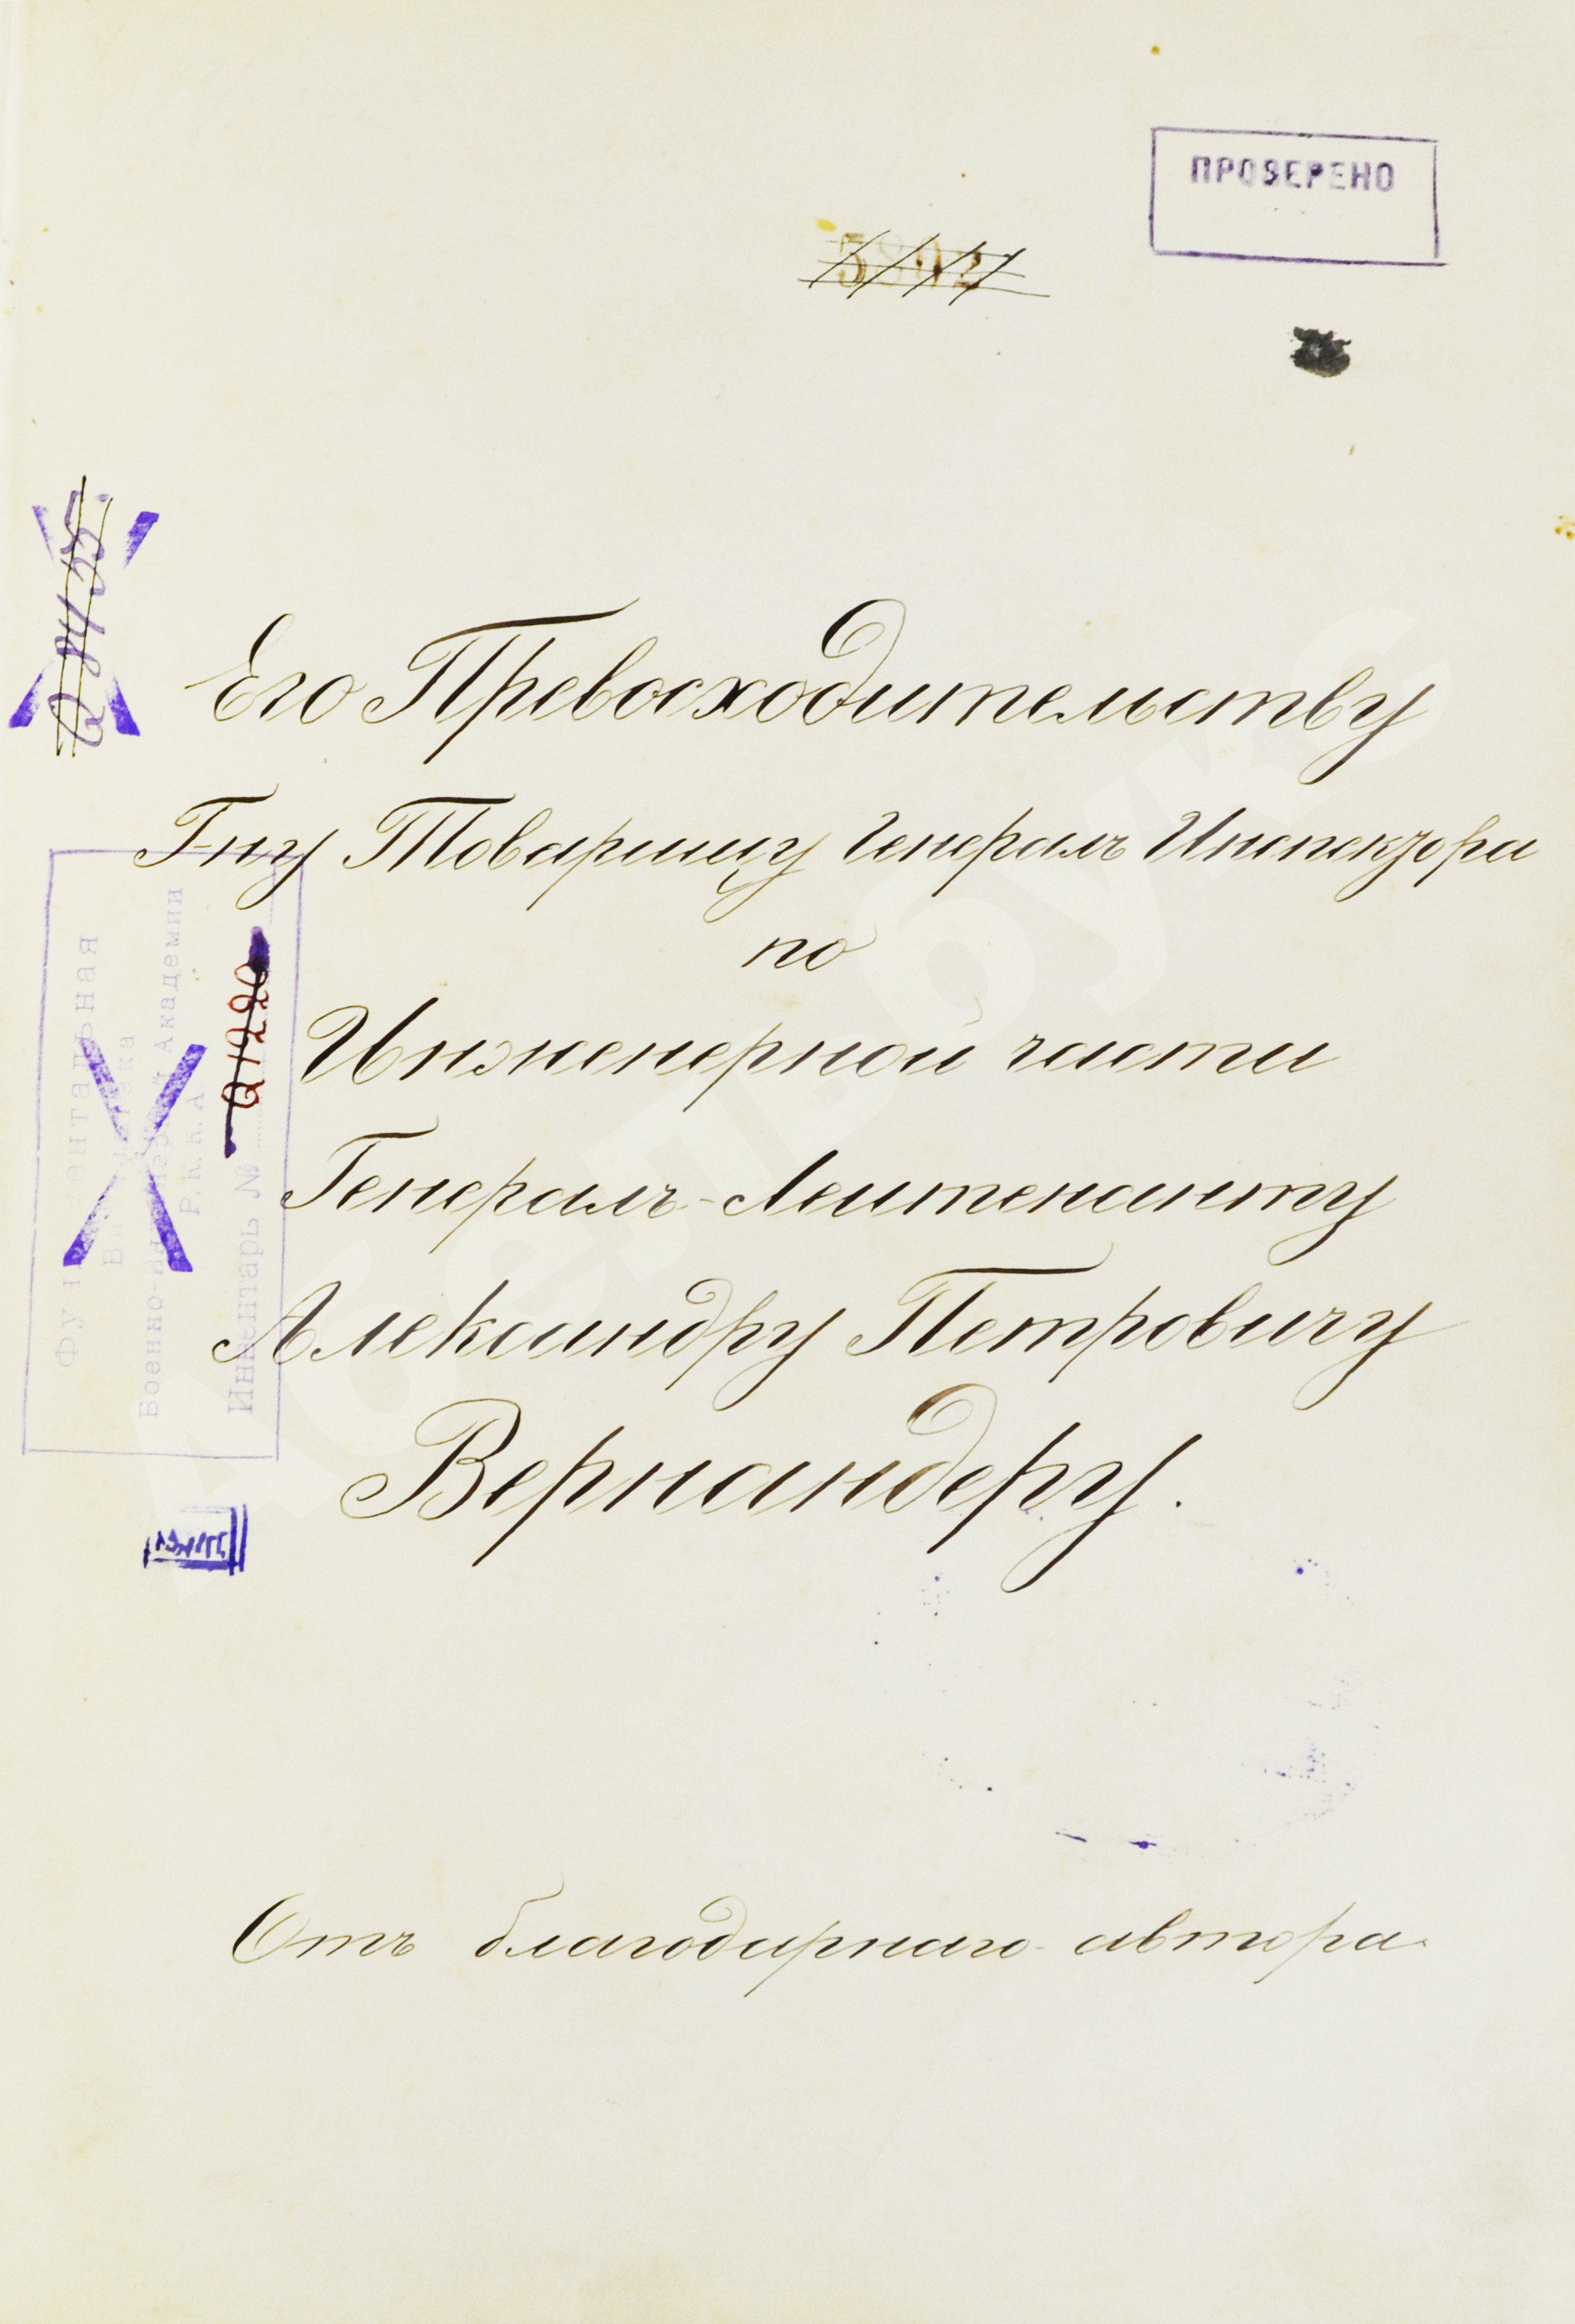 ПРОВЕРЕНО
Его Превосходительству
Г-ну Товарищу Генералъ Инспектора
по
Инженерной части
Генералъ-Лейтенанту
Александру Петровичу
Вернандеру.
Отъ благодарнаго автора.
Фундаментальная
Военно-инженерной Академии
Р.К.К.А.
Инвентарь №
Абелъ Букс